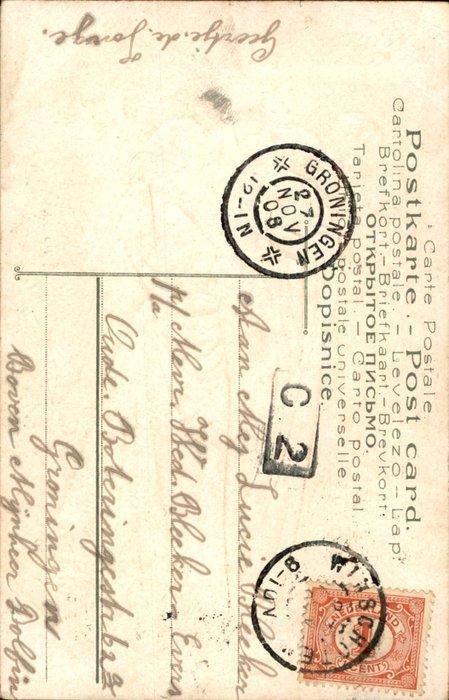 Carte Postale
Postkarte. - Post card.
Cartolina postale. - Levelező-Lap.
Brefkort.-Briefkaart.-Brevkort.
ОТКРЫТОЕ ПИСЬМО.
Tarjeta postal. - Carto postal
postale universelle
Dopisnice.
GRONINGEN
27
NOV
08
12-1N
C 2
WINSCHOTEN
8-10V
1
CENT
Geertje de Jonge.
Aan Mej Lucie Bleeker
p/a Mevr Wed. Bleeker
Oude Boteringestraat
Groningen
Boven Mijnheer Dolfin